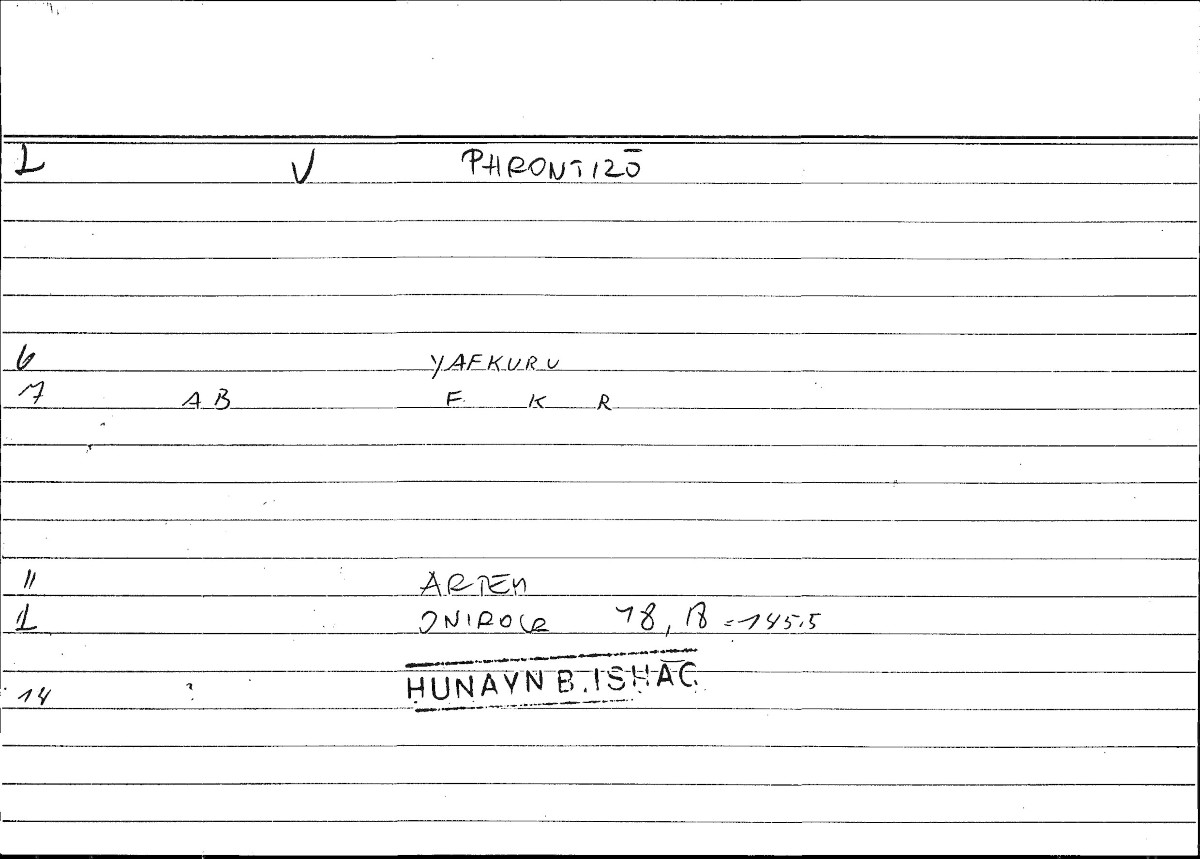 1 V PHRONTIZŌ
6 YAFKURU
7 AB F K R
11 ARTEM
1 ONIROCR 18, 18 = 145.5
14 ḤUNAYN B. ISḤĀQ